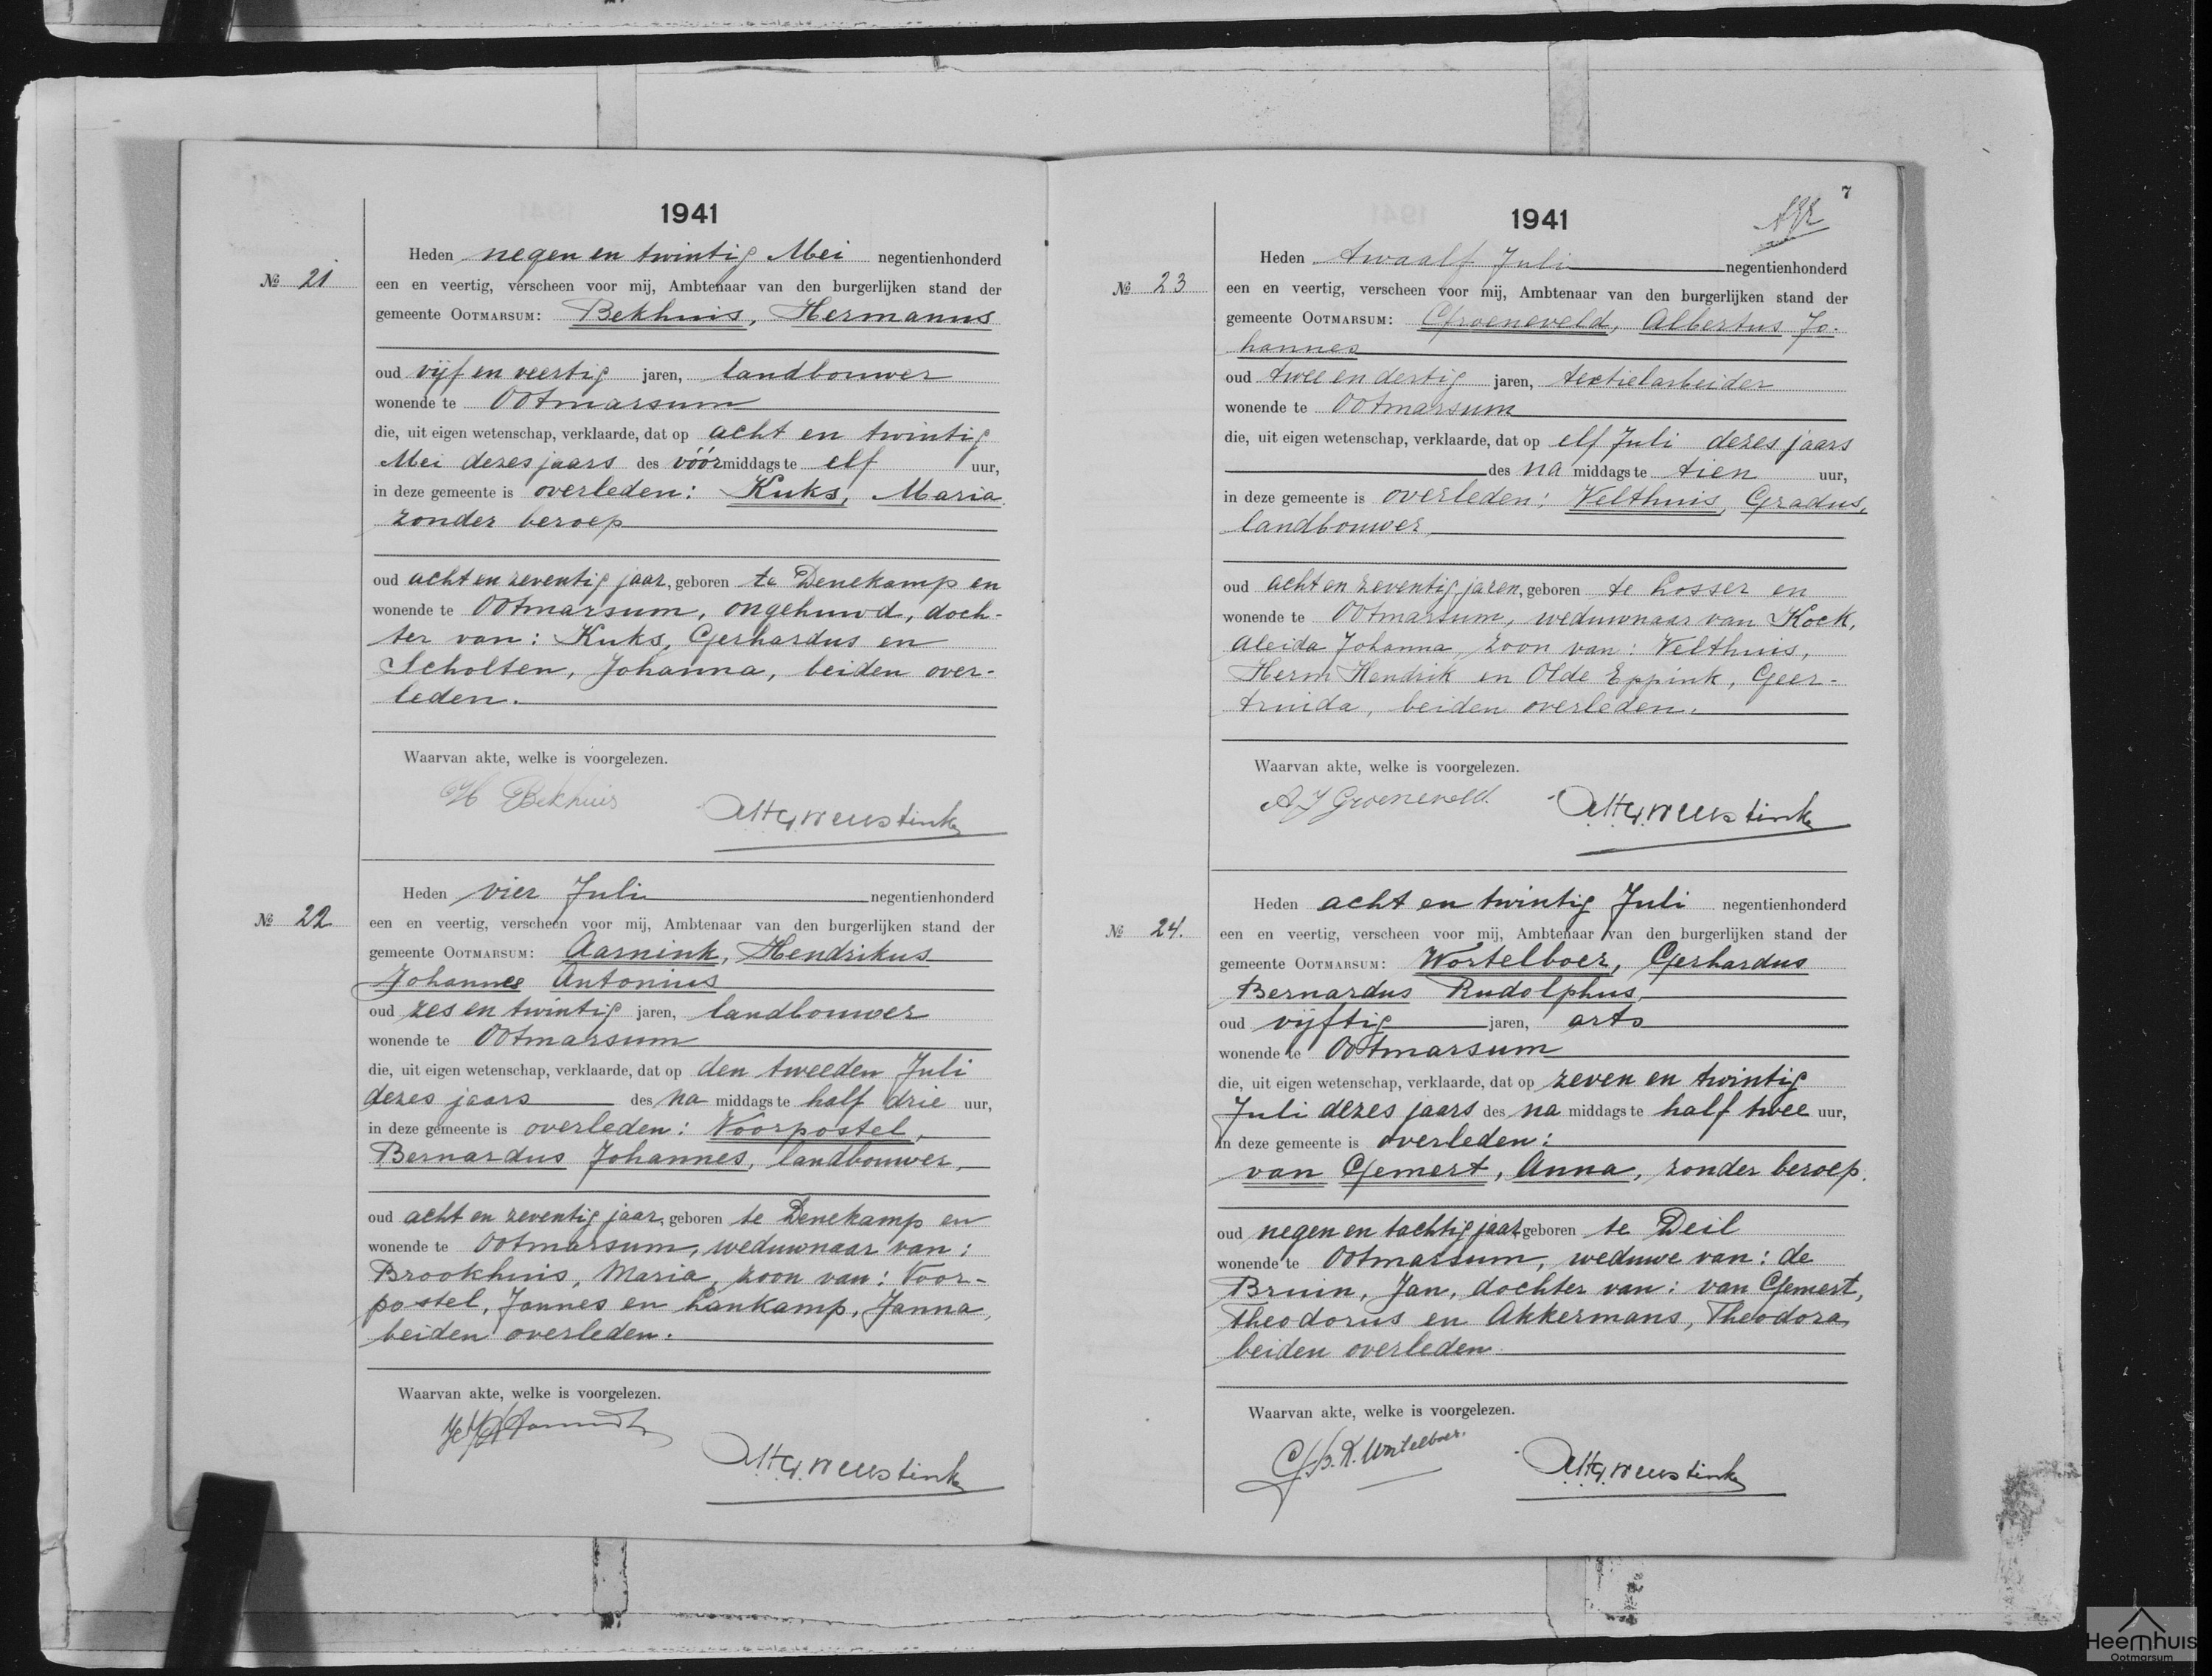 1941
Heden negen en twintig Mei negentienhonderd
№ 21
een en veertig, verscheen voor mij, Ambtenaar van den burgerlijken stand der
gemeente OOTMARSUM: Bekhuis, Hermanus
oud vijf en veertig jaren, landbouwer
wonende te Ootmarsum
die, uit eigen wetenschap, verklaarde, dat op acht en twintig
Mei dezes jaars des vóórmiddags te elf uur,
in deze gemeente is overleden: Kuks, Maria
zonder beroep
oud acht en zeventig jaar, geboren te Denekamp en
wonende te Ootmarsum, ongehuwd, doch-
ter van: Kuks, Gerhardus en
Scholten, Johanna, beiden over-
leden.
Waarvan akte, welke is voorgelezen.
H Bekhuis
Heden vier Juli negentienhonderd
№ 22
een en veertig, verscheen voor mij, Ambtenaar van den burgerlijken stand der
gemeente OOTMARSUM: Aarnink, Hendrikus
Johannes Antonius
oud zes en twintig jaren, landbouwer
wonende te Ootmarsum
die, uit eigen wetenschap, verklaarde, dat op den tweeden Juli
dezes jaars des na middags te half drie uur,
in deze gemeente is overleden: Voorpostel,
Bernardus Johannes, landbouwer,
oud acht en zeventig jaar, geboren te Denekamp en
wonende te Ootmarsum, weduwnaar van:
Brookhuis, Maria, zoon van: Voor-
postel, Jannes en Lankamp, Janna,
beiden overleden.
Waarvan akte, welke is voorgelezen.
7
1941
Heden twaalf Juli negentienhonderd
№ 23
een en veertig, verscheen voor mij, Ambtenaar van den burgerlijken stand der
gemeente OOTMARSUM: Groeneveld, Albertus Jo-
hannes
oud twee en dertig jaren, textielarbeider
wonende te Ootmarsum
die, uit eigen wetenschap, verklaarde, dat op elf Juli dezes jaars
des na middags te tien uur,
in deze gemeente is overleden: Velthuis, Gradus,
landbouwer
oud acht en zeventig jaren, geboren te Losser en
wonende te Ootmarsum, weduwnaar van Kock,
Aleida Johanna, zoon van: Velthuis,
Herm Hendrik en Olde Eppink, Geer-
truida, beiden overleden.
Waarvan akte, welke is voorgelezen.
A J Groeneveld.
Heden acht en twintig Juli negentienhonderd
№ 24.
een en veertig, verscheen voor mij, Ambtenaar van den burgerlijken stand der
gemeente OOTMARSUM: Wortelboer, Gerhardus
Bernardus Rudolphus,
oud vijftig jaren, arts
wonende te Ootmarsum
die, uit eigen wetenschap, verklaarde, dat op zeven en twintig
Juli dezes jaars des na middags te half twee uur,
in deze gemeente is overleden:
van Gemert, Anna, zonder beroep.
oud negen en tachtig jaar geboren te Deil
wonende te Ootmarsum, weduwe van: de
Bruin, Jan, dochter van: van Gemert,
Theodorus en Akkermans, Theodora,
beiden overleden.
Waarvan akte, welke is voorgelezen.
G.B.R. Wortelboer.
Heemhuis
Ootmarsum